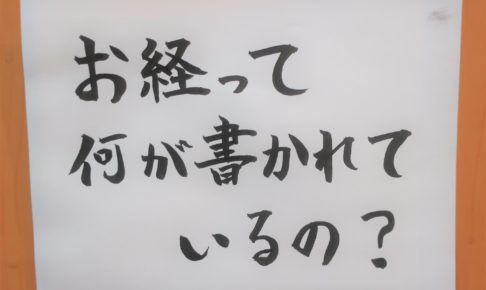 お経って
何が書かれて
いるの？